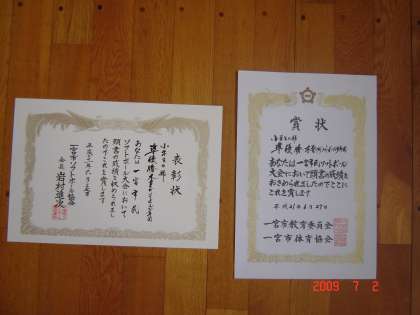 表彰状
小学生の部
準優勝
あなたは一宮市民
ソフトボール大会において
頭書の成績を収められまし
たのでこれを賞します
一宮市ソフトボール協会
会長
賞状
小学生の部
準優勝
あなたは一宮市民ソフトボール
大会において頭書の成績を
おさめられましたのでここに
これを賞します
平成21年6月27日
一宮市教育委員会
一宮市体育協会
2009 7 2